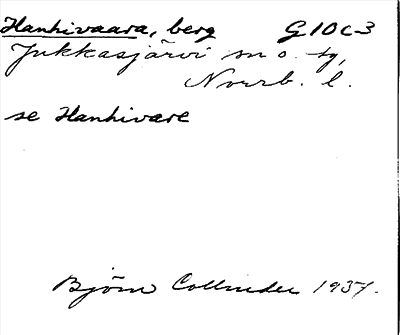 Hanhivaara, berg G10c3
Jukkasjärvi sn o. tg,
Norrb. l.
se Hanhivare
Björn Collinder 1937.